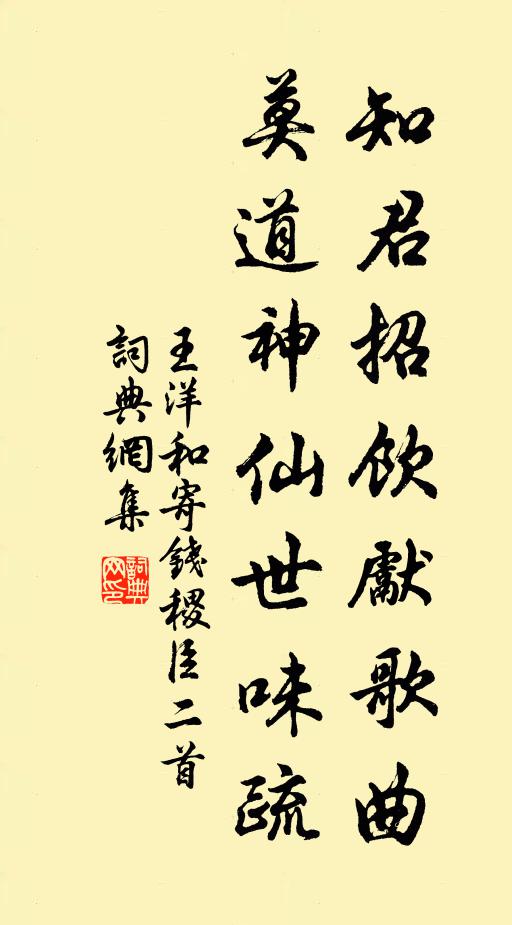 知君招飲獻歌曲
莫道神仙世味疏
王洋和寄錢稷臣二首
詞典網集
詞典網印